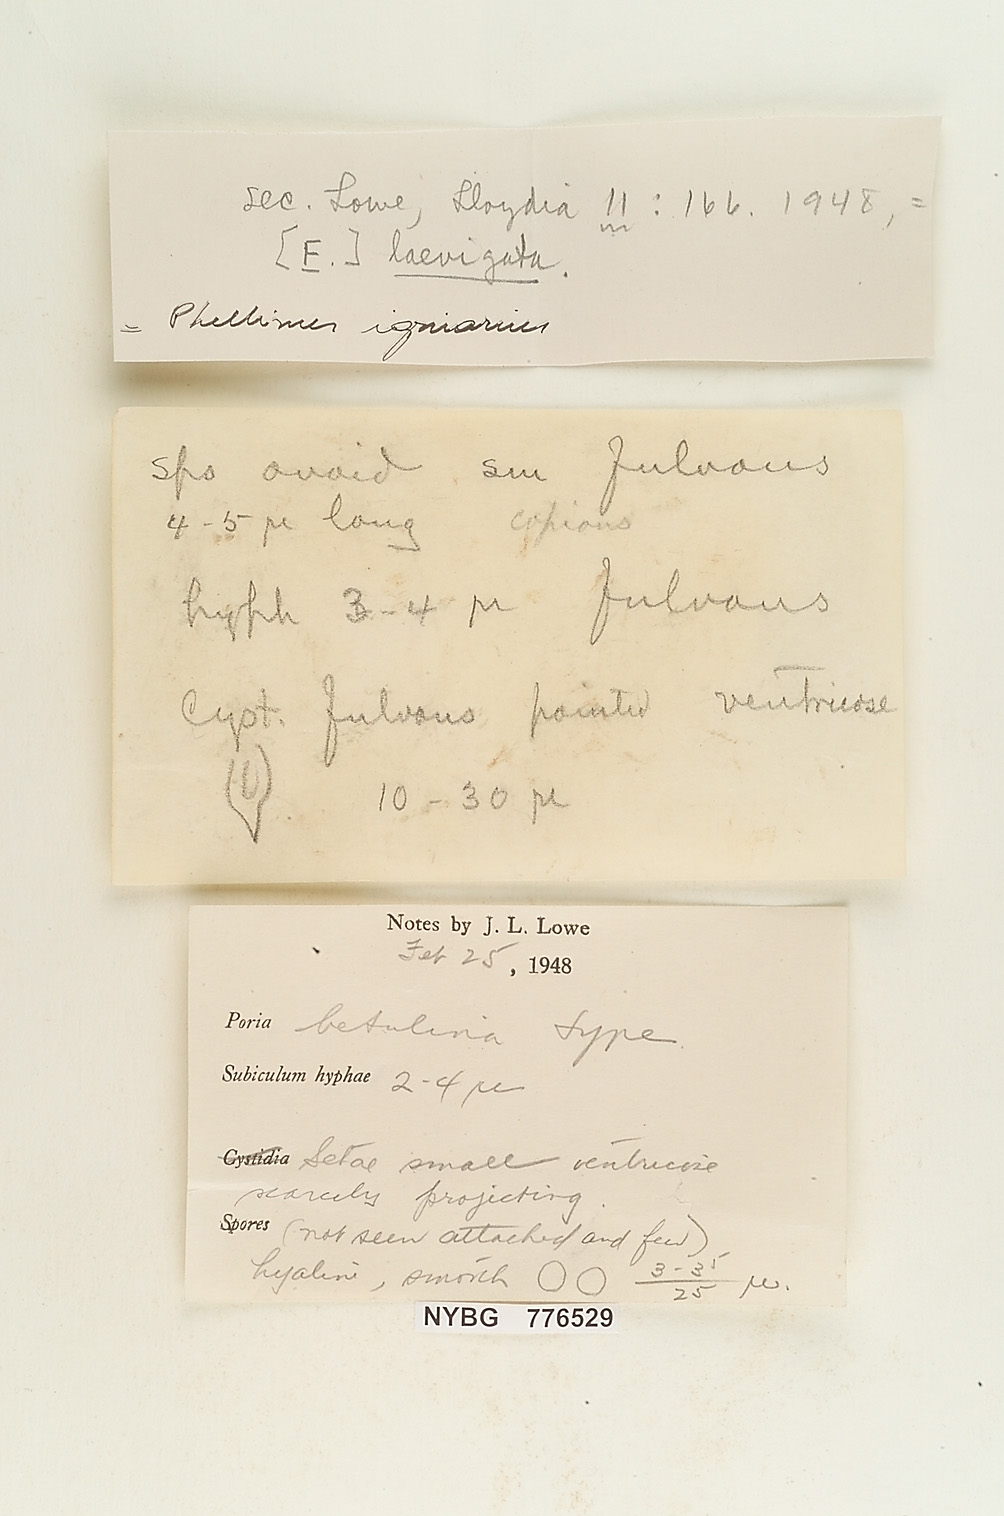 sec. Lowe, Lloydia 11 : 166. 1948, =
[F.] laevigata.
= Phellinus igniarius
spo ovoid sm fulvous
4-5 µ long copious
hyph 3-4 µ fulvous
Cyst. fulvous pointed ventricose
10-30 µ
Notes by J. L. Lowe
Feb 25, 1948
Poria betulina type
Subiculum hyphae 2-4 µ
Cystidia Setae small ventricose
scarcely projecting.
Spores (not seen attached and few)
hyaline, smooth 3-35
25 µ.
NYBG 776529